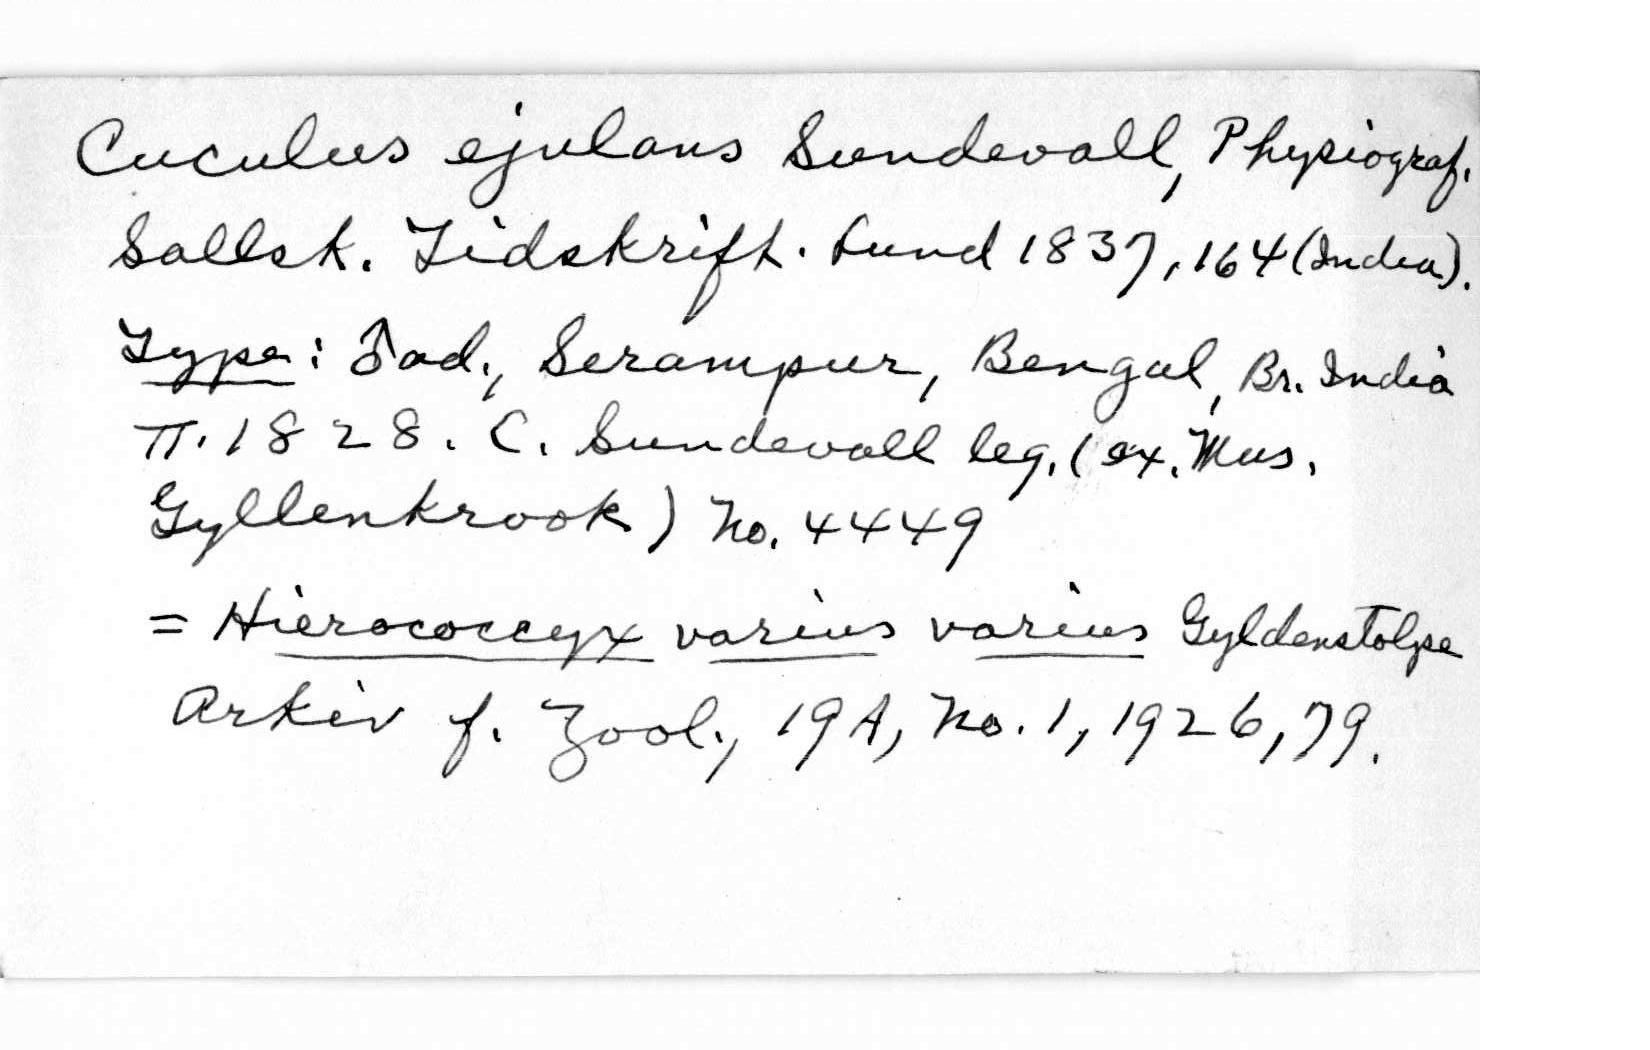 Cuculus ejulans Sundevall, Physiograf.
Sallsk. Tidskrift. Lund 1837, 164 (India).
Type: ♂ ad., Serampur, Bengal, Br. India
II. 1828. C. Sundevall leg. (ex. Mus.
Gyllenkrook) No. 4449
= Hierococcyx varius varius Gyldenstolpe
Arkiv f. Zool., 19A, No. 1, 1926, 79.